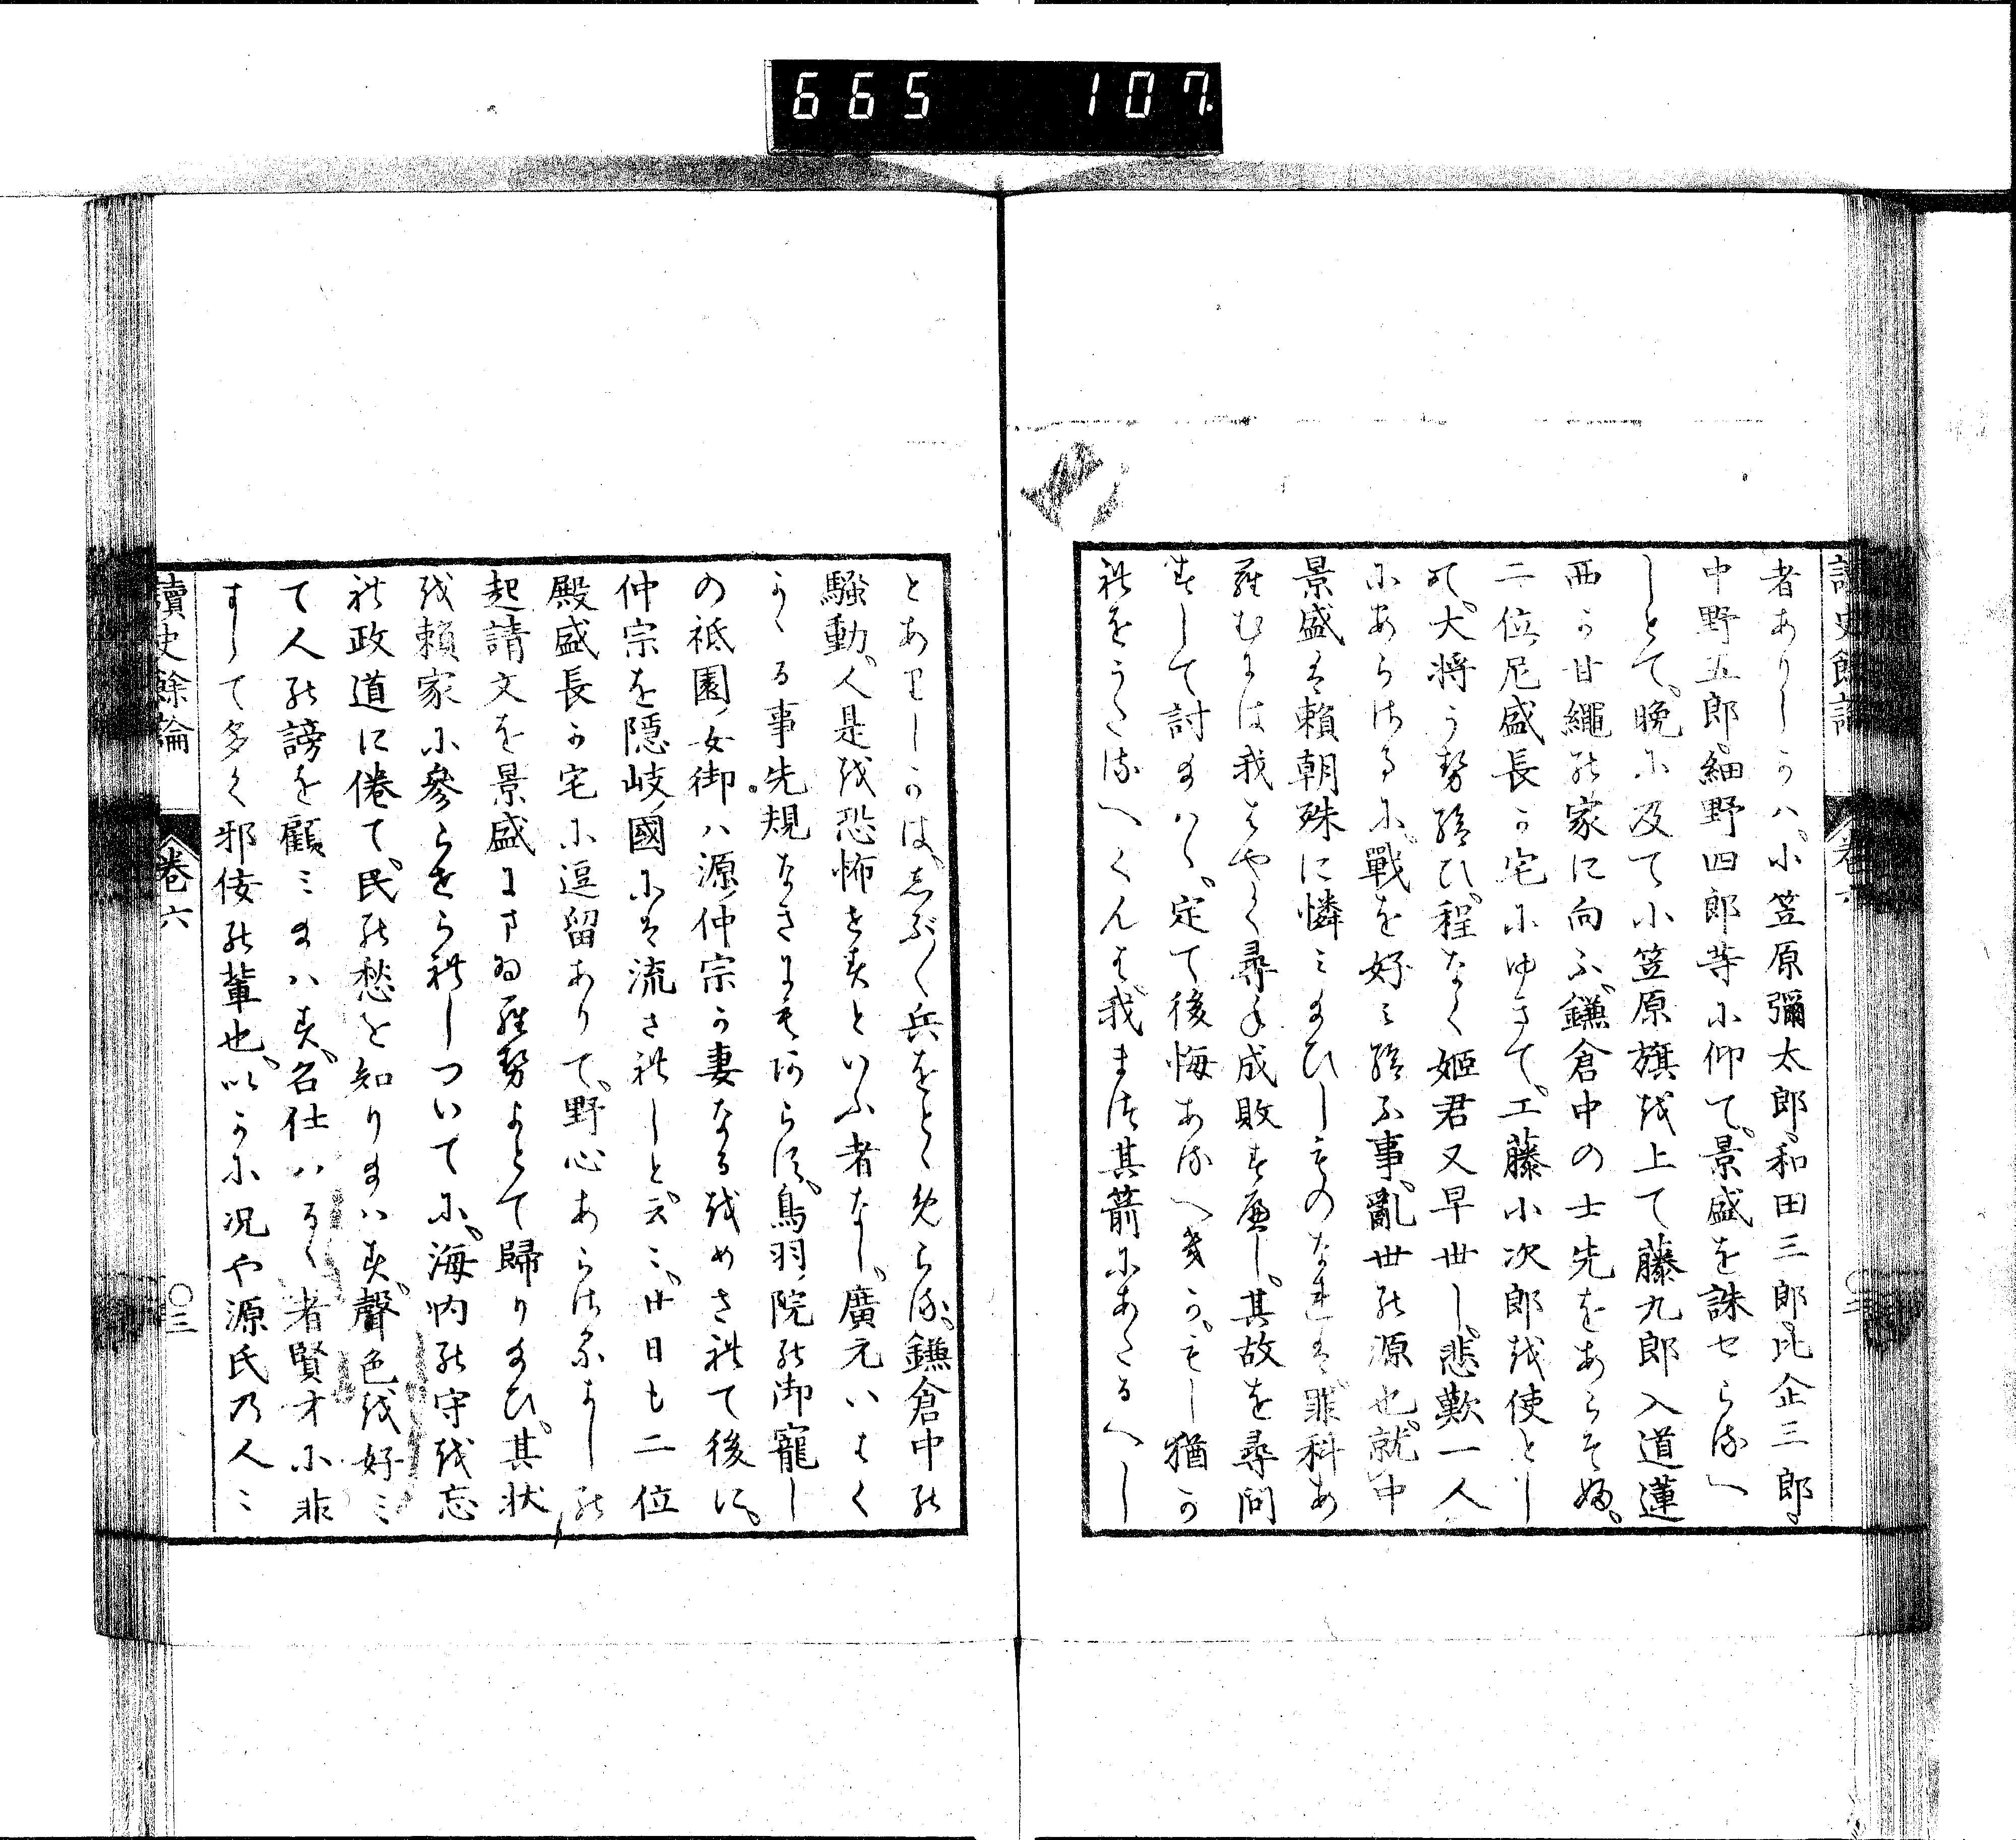 665 107
讀史餘論 卷六 〇二
者ありしかハ小笠原彌太郎和田三郎比企三郎
中野五郎細野四郎等に仰て景盛を誅せらるへ
しとて晩に及て小笠原旗を上て藤九郎入道蓮
西か甘繩の家に向ふ鎌倉中の士先をあらそふ
二位尼盛長か宅にゆきて工藤小次郎を使とし
の大将う勢給ひ程なく姫君又早世し悲歎一人
にあらさるに戰を好ミ給ふ事亂世の源也就中
景盛は頼朝殊に憐ミ給ひしものなれは罪科あ
らむには我はやく尋ね成敗すへし其故を尋問
すして討給ハヽ定て後悔あるへきかもし猶か
れをうたるへくんは我まつ其箭にあたるへし
とありしかはしぶ〱兵をとゝめらる鎌倉中の
騷動人是を恐怖せすといふ者なし廣元いはく
かゝる事先規なきにもあらす鳥羽ノ院の御寵し
の祗園ノ女御ハ源ノ仲宗か妻なるをめされて後に
仲宗を隠岐ノ國には流されしと云ミ廿日も二位
殿盛長か宅に逗留ありて野心あらさるよしの
起請文を景盛にまゐらせよとて歸り給ひ其状
を頼家に參らせられしついてに海内の守を忘
れ政道に倦て民の愁を知り給ハす聲色を好ミ
て人の謗を顧ミ給ハす召仕ハるゝ者賢才に非
すして多く邪佞の輩也いかに况や源氏の人ミ
讀史餘論 卷六 〇三